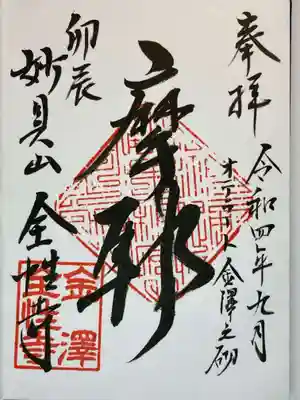 奉拝
令和四年九月
オテラート金澤之砌
摩耶
卯辰
妙具山全性寺
金澤
全性寺